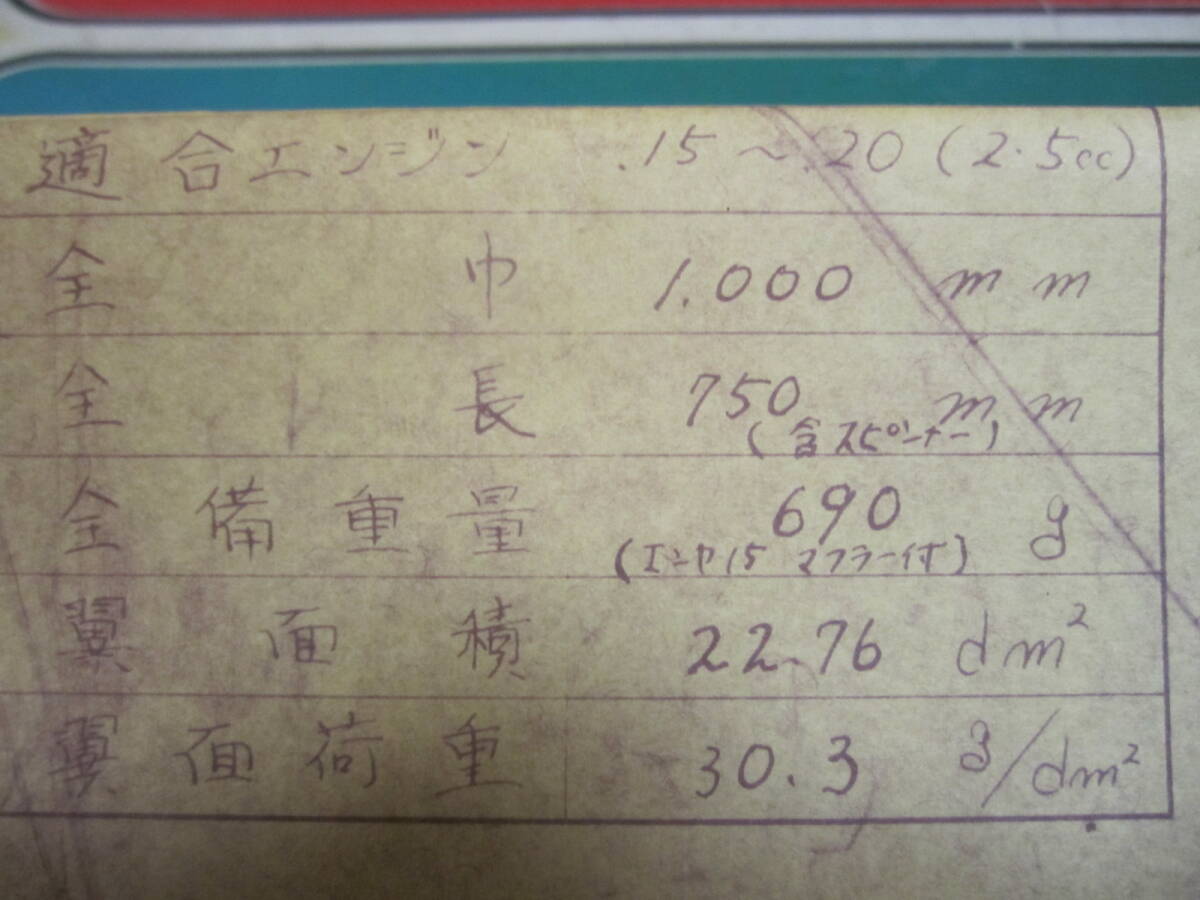 適合エンジン .15～.20(2.5cc)
全巾 1.000 mm
全長 750 mm
(含スピンナー)
全備重量 690 g
(エンヤ15 マフラー付)
翼面積 22.76 dm²
翼面荷重 30.3 g/dm²